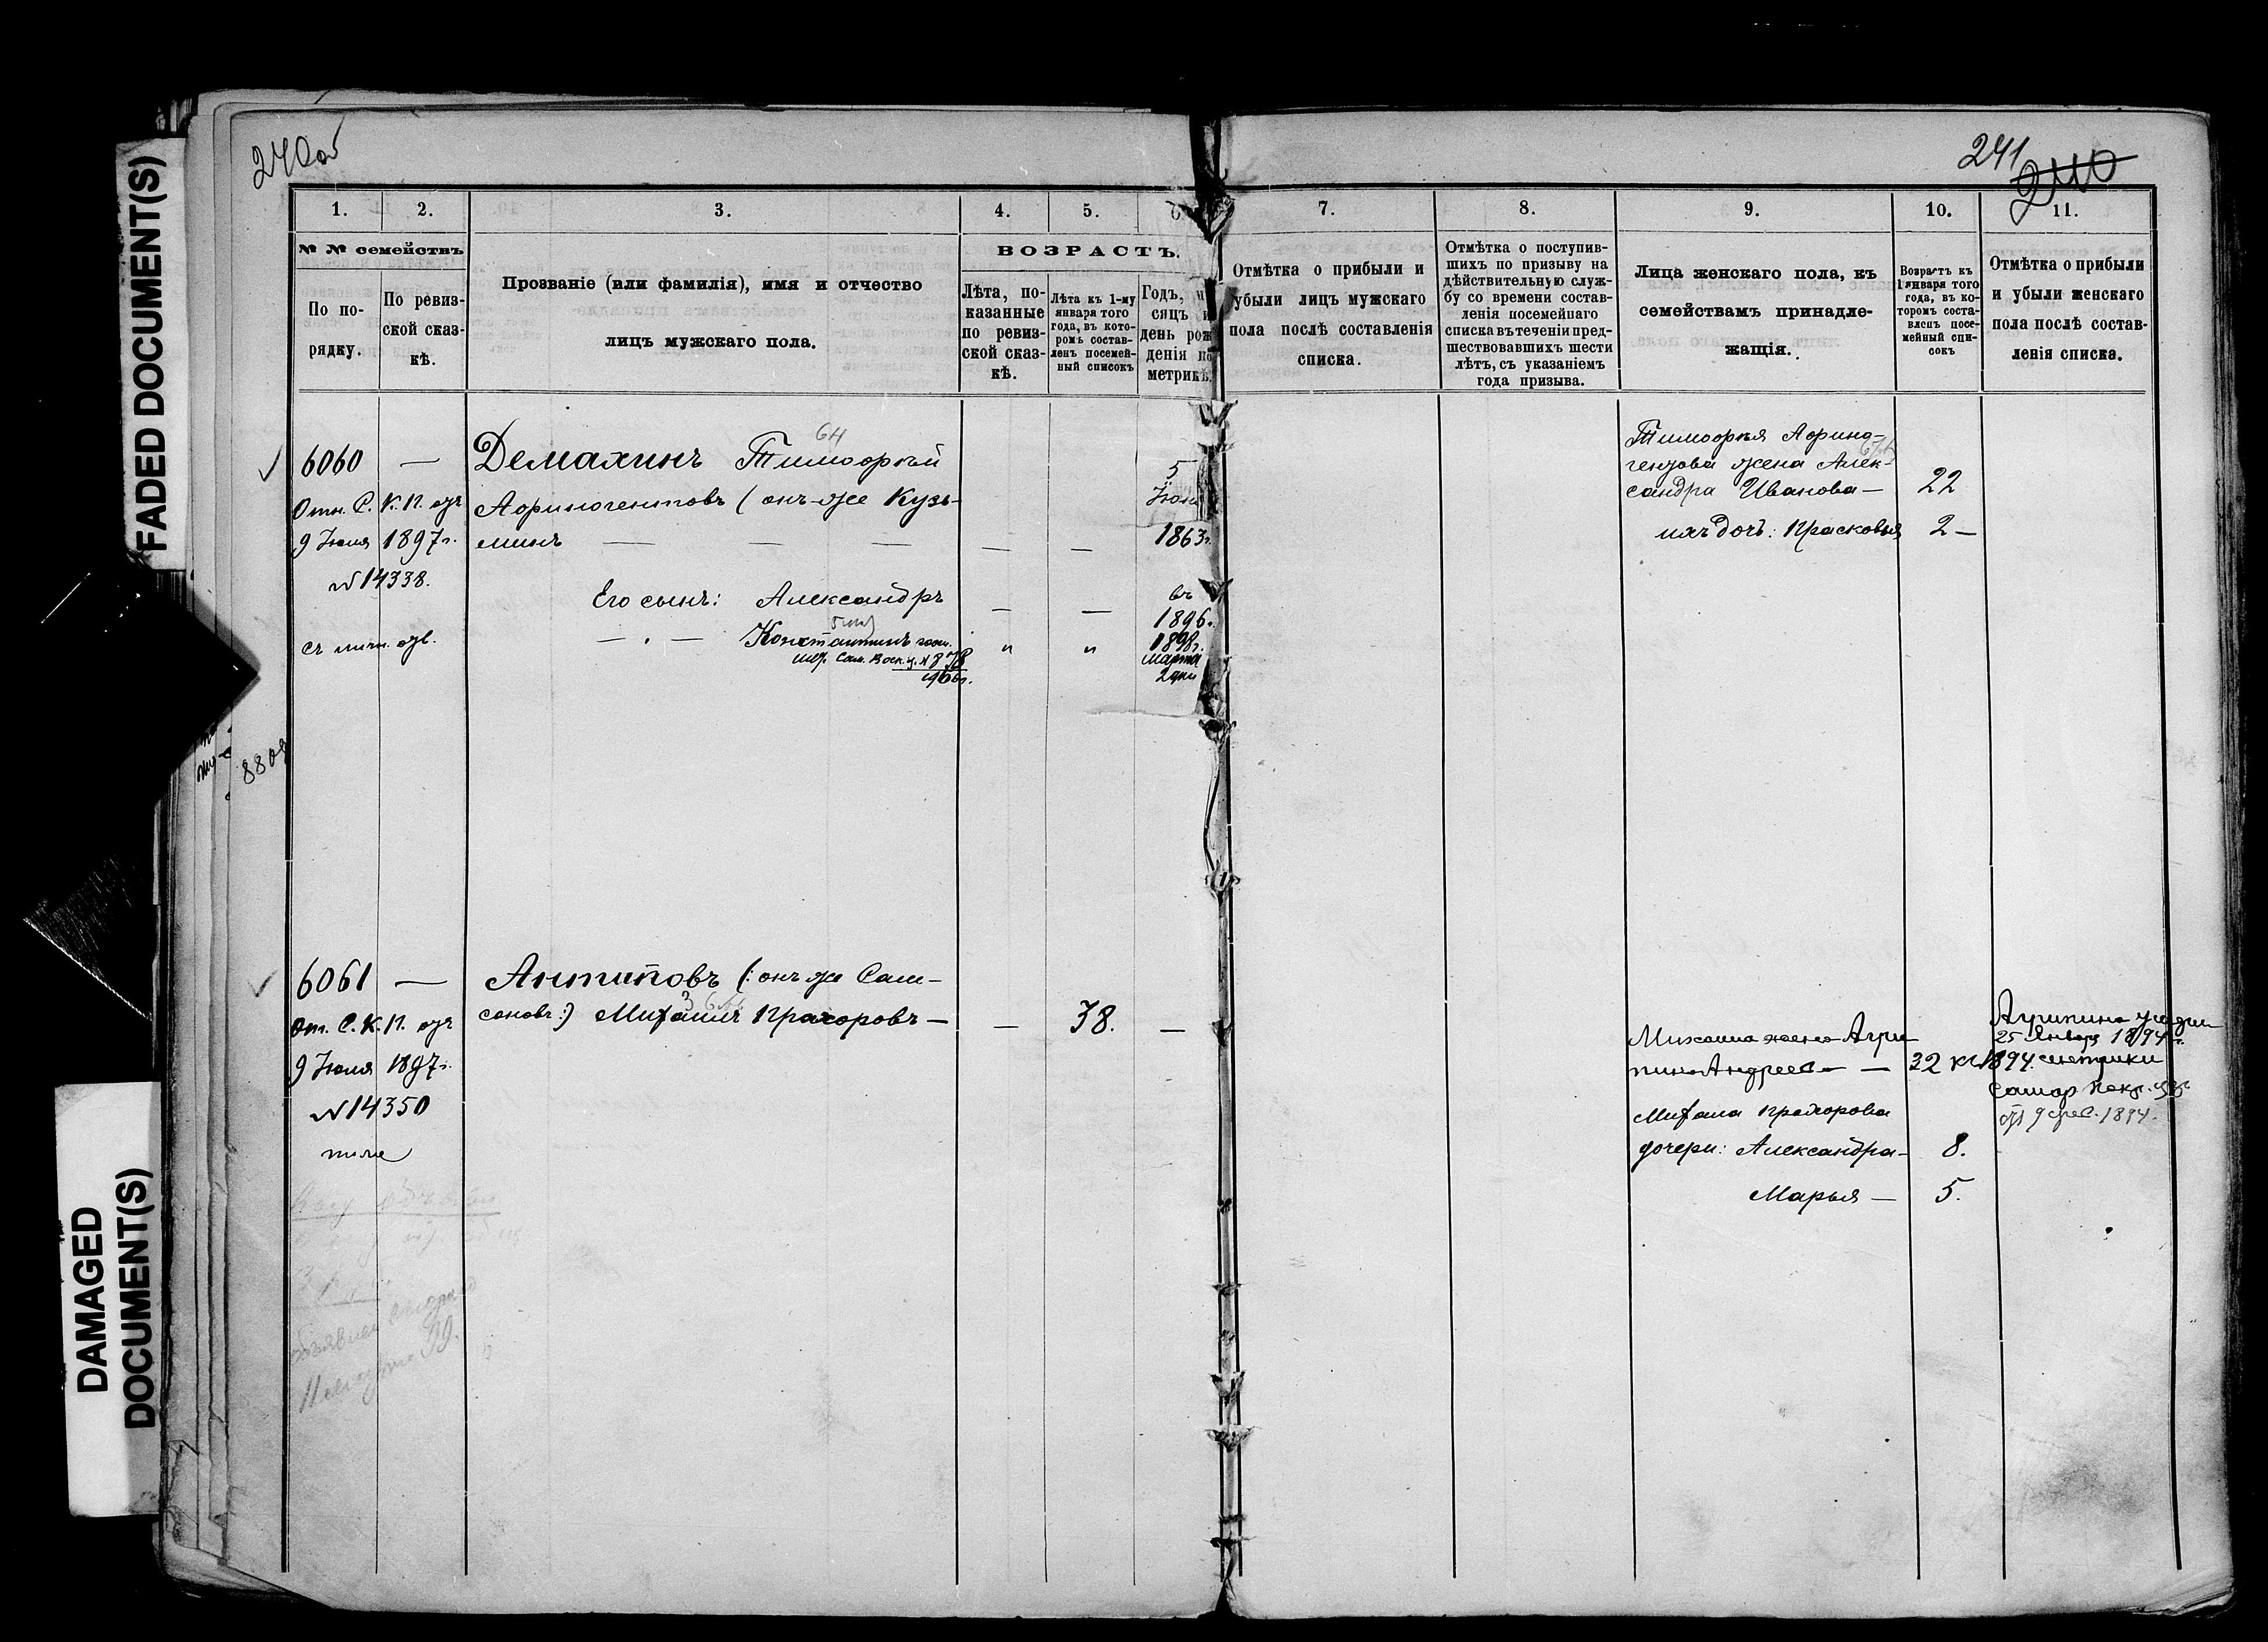 FAADED DOCUMENT(S)
DAMAGED
DOCUMENT(S)
240об
241
240
1.
2.
3.
4.
5.
6
№ № семействъ
По по-
рядку.
По ревиз-
ской сказ-
кѣ.
Прозваніе (или фамилія), имя и отчество
лицъ мужскаго пола.
ВОЗРАСТЪ.
Лѣта, по-
казанные
по ревиз-
ской сказ-
кѣ.
Лѣта къ 1-му
января того
года, въ кото-
ромъ состав-
ленъ посемей-
ный списокъ
Годъ,
сяцъ и
день рож
денія по
метрикѣ.
7.
8.
9.
10.
11.
Отмѣтка о прибыли и
убыли лицъ мужскаго
пола послѣ составленія
списка.
Отмѣтка о поступив-
шихъ по призыву на
дѣйствительную служ-
бу со времени состав-
ленія посемейнаго
списка въ теченіи пред-
шествовавшихъ шести
лѣтъ, съ указаніемъ
года призыва.
Лица женскаго пола, къ
семействамъ принадле-
жащія.
Возрастъ къ
1 января того
года, въ ко-
торомъ соста-
вленъ посе-
мейный спи-
сокъ
Отмѣтка о прибыли
и убыли женскаго
пола послѣ состав-
ленія списка.
6060 —
Отн. С. К. П. отъ
9 Іюля 1897 г.
№ 14338.
64
Демахинъ Тимофѣй
Афиногентовъ (онъ-же Кузь-
минъ — — — — —
5
Іюня
1863 г.
Его сынъ: Александръ — —
въ
1896 г.
— " — Константинъ
" "
1898 г.
марта
2 дня
1906 г.
8809
Тимофѣя Афино-
гентова жена Алек-
сандра Иванова — 22
ихъ дочь: Прасковья 2 —
6061 —
От. С. К. П. отъ
9 Іюля 1897 г.
№ 14350
Антиповъ (: онъ же Сам-
соновъ :) Михаилъ Прохоровъ — — 38. —
Михаила жена Агри-
пина Андреева — 32
Агрипина
25 Января 1894 г.
1894. метрики
1894.
Михаила Прохорова
дочери: Александра — 8.
Марья — 5.